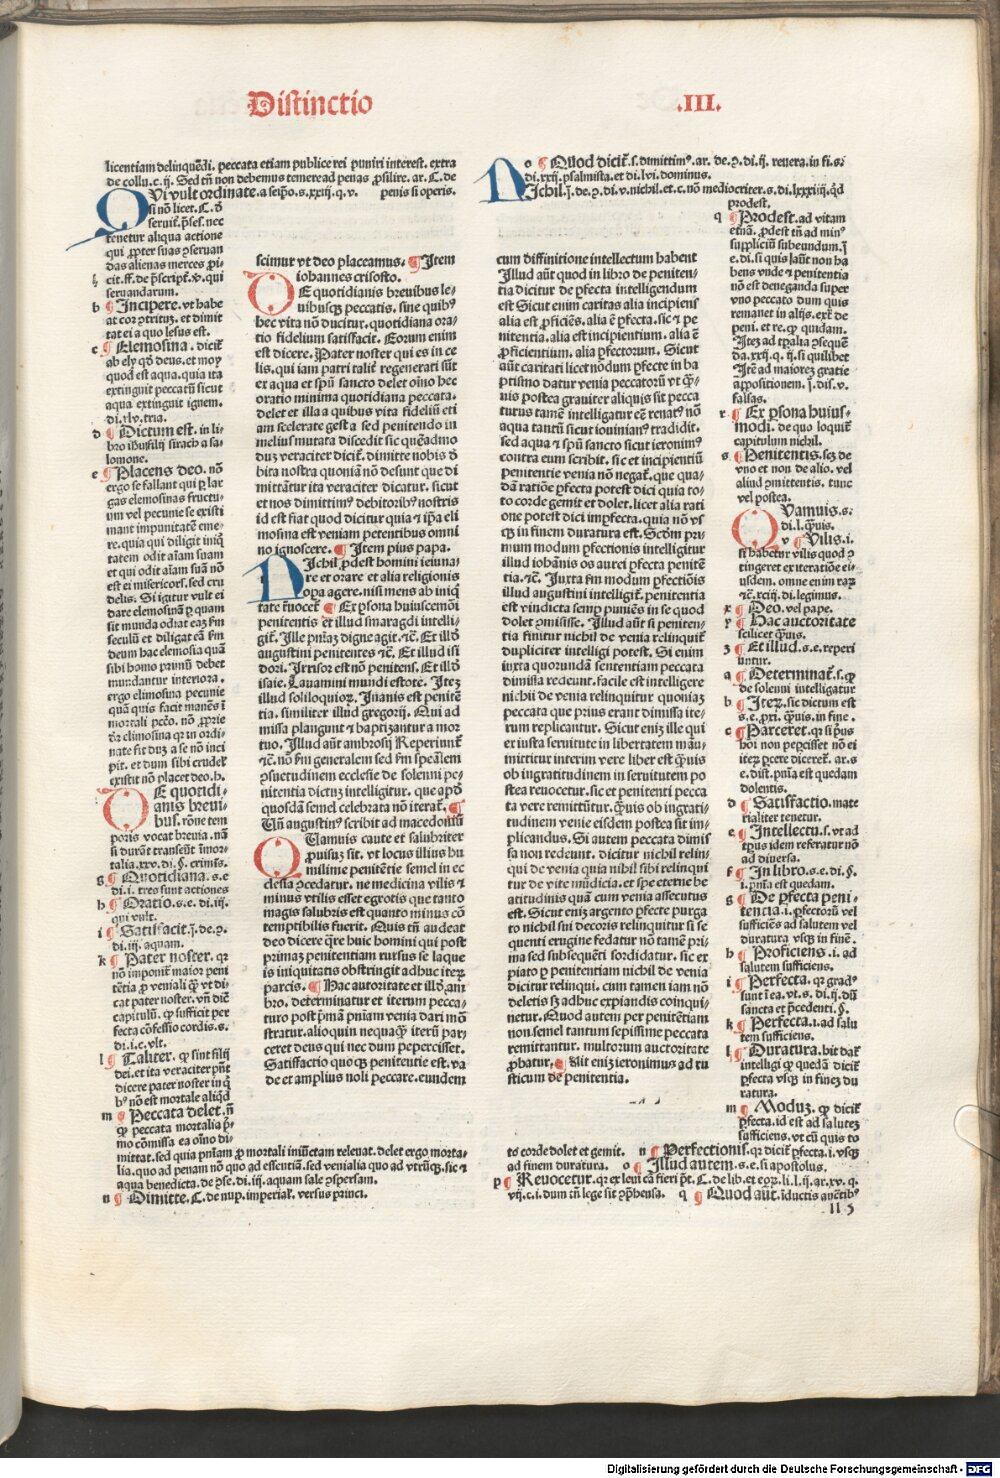 Distinctio
.III.
licentiam delinquēdi. peccata etiam publice rei puniri interest. extra
de collu. c. ij. Sed tn̄ non debemus temere ad penas ꝓsilire. ar. C. de
QUi vult ordinate. a seip̄o. s. xxiij. q. v. penis si operis.
si nō licet. C. d̄
tenetur aliqua actione
qui ꝓpter suas ꝯseruan
das alienas merces ꝓi
seruandarum.
b ¶ Incipere. vt habe
tat ei a quo lesus est.
c ¶ Elemosina. dicit̄
quod est aqua. quia ita
extinguit peccatū sicut
aqua extinguit ignem.
d ¶ Dictum est. in li
lomone.
e ¶ Placens deo. nō
ergo se fallant qui ꝑ lar
gas elemosinas fructu-
um vel pecunie se existi
mant impunitatē eme-
re. quia qui diligit iniq̄
tatem odit aīam suam
et qui odit aīam suā nō
est ei misericors. sed cru
delis. Si igitur vult ei
dare elemosinā ꝑ quam
sit munda odiat eaꝫ ẜm
seculū et diligat eā ẜm
deum hac elemosia quā
sibi homo primū debet
mundantur interiora.
ergo elimosina pecunie
quā quis facit manēs ī
mortali pctō. nō ꝓprie
nate fit duꝫ a se nō inci
pit. et dum sibi crudel̄
existit nō placet deo. h.
DE quotidi-
anis breui-
bus. rōne tem
poris vocat breuia. nā
si durāt transeūt īmor-
talia. xxv. di. §. crimīs.
g ¶ Quotidiana. s. e
di. i. tres sunt actiones
h ¶ Oratio. s. e. di. iij.
qui vult.
i ¶ Satisfacit. j. de. ꝯ.
di. iij. aquam.
k ¶ Pater noster. qr
nō imponit̄ maior peni
tētia ꝓ veniali q̄ꝫ vt di-
cat pater noster. vn̄ dic̄
capitulū. ꝙ sufficit per
fecta cōfessio cordis. s.
di. i. c. vlt.
l ¶ Taliter. ꝙ sint filij
dei. et ita veraciter pn̄t
dicere pater noster in q̄
hꝰ nō est mortale aliqd̄
m ¶ Peccata delet. n̄
ꝙ peccata mortalia p̄-
mo cōmissa ea oīno di-
mittat. sed quia pn̄iam ꝓ mortali iniūctam releuat. delet ergo morta-
lia. quo ad penam nō quo ad essentiā. sed venialia quo ad vtrūqꝫ. sic ⁊
aqua benedicta. de ꝯse. di. iij. aquam sale ꝯspersam.
n ¶ Dimitte. C. de nup. imperial̄. versus princi.
scimur vt deo placeamus. ¶ Item
iohannes crisosto.
DE quotidianis breuibus le-
uibusqꝫ peccatis. sine quibꝰ
hec vita nō ducitur. quotidiana ora-
tio fidelium satisfacit. Eorum enim
est dicere. Pater noster qui es in ce
lis. qui iam patri tali regenerati sūt
ex aqua et spū sancto delet oīno hec
oratio minima quotidiana peccata.
delet et illa a quibus vita fideliū eti
am scelerate gesta sed penitendo in
melius mutata discedit sic quēadmo
duꝫ veraciter dicit̄. dimitte nobis d̄
bita nostra quoniā nō desunt que di
mittātur ita veraciter dicatur. sicut
et nos dimittimꝰ debitoribꝰ nostris
id est fiat quod dicitur quia ⁊ ip̄a eli
mosina est veniam petentibus omni
no ignoscere. ¶ Item pius papa.
NIchil ꝓdest homini ieiuna-
re et orare et alia religionis
opa agere. nisi mens ab iniq̄
tate reuocet̄ ¶ Ex ꝑsona huiuscemōi
penitentis et illud smaragdi intelli-
git̄. Ille pn̄iaꝫ digne agit. ⁊c̄. Et illd̄
augustini penitentes ⁊c̄. Et illud isi
dori. Irrisor est nō penitens. Et illd̄
isaie. Lauamini mundi estote. Iteꝫ
illud soliloquioꝝ. Inanis est penitē
tia. similiter illud gregorij. Qui ad
missa plangunt ⁊ baptizantur a mor
tuo. Illud aūt ambrosij Reperiunt̄
⁊c̄. nō ẜm generalem sed ẜm speālem
ꝯsuetudinem ecclesie de solenni pe-
nitentia dictuꝫ intelligitur. que apd̄
quosdā semel celebrata nō iterat̄. ¶
Vn̄ augustinꝰ scribit ad macedoniū
QUamuis caute et salubriter
ꝓuisuꝫ sit. vt locus illius hu
milime penitētie semel in ec
clesia ꝯcedatur. ne medicina vilis ⁊
minus vtilis esset egrotis que tanto
magis salubris est quanto minus cō
temptibilis fuerit. Quis tn̄ audeat
deo dicere q̄re huic homini qui post
primaꝫ penitentiam rursus se laque
is iniquitatis obstringit adhuc iterꝫ
parcis. ¶ Hac autoritate et illd̄ am̄
bro. determinatur et iterum pecca-
turo post p̄mā pn̄iam venia dari mō
stratur. alioquin nequaq̄ꝫ iterū par
ceret deus qui nec dum pepercisset.
Satisfactio quoqꝫ penitutie est. va
de et amplius noli peccare. eundem
cum diffinitione intellectum habent
Illud aūt quod in libro de peniten-
tia dicitur de ꝑfecta intelligendum
est Sicut enim caritas alia incipiens
alia est ꝓficiēs. alia ē ꝑfecta. sic ⁊ pe
nitentia. alia est incipientium. alia ē
ꝓficientium. alia ꝑfectorum. Sicut
aūt caritati licet nōdum ꝑfecte in ba
ptismo datur venia peccatorū vt q̄-
uis postea grauiter aliquis sit pecca
turus tamē intelligatur eē renatꝰ nō
aqua tantū sicut iouinianꝰ tradidit.
sed aqua ⁊ spū sancto sicut ieronimꝰ
contra eum scribit. sic et incipientiū
penitentie venia nō negat̄. que qua-
dā ratiōe ꝑfecta potest dici quia to-
to corde gemit et dolet. licet alia rati
one potest dici imꝑfecta. quia nō vs
qꝫ in finem duratura est. Scd̄m pri-
mum modum ꝑfectionis intelligitur
illud iohānis os aurei ꝑfecta penitē
tia. ⁊c̄. Iuxta ẜm modum ꝑfectiōis
illud augustini intelligit̄. penitentia
est vindicta semꝑ puniēs in se quod
dolet ꝯmisisse. Illud aūt si peniten-
tia finitur nichil de venia relinquit̄
dupliciter intelligi potest. Si enim
iuxta quorundā sententiam peccata
dimissa redeunt. facile est intelligere
nichil de venia relinquitur quoniaꝫ
peccata que prius erant dimissa ite-
rum replicantur. Sicut eniꝫ ille qui
ex iusta seruitute in libertatem māu-
mittitur interim vere liber est q̄uis
ob ingratitudinem in seruitutem po
stea reuocetur. sic et penitenti pecca
ta vere remittūtur. q̄uis ob ingrati-
tudinem venie eisdem postea sit im-
plicandus. Si autem peccata dimis
sa non redeunt. dicitur nichil relin-
qui de venia quia nihil sibi relinqui
tur de vite mūdicia. et spe eterne be
atitudinis quā cum venia assecutus
est. Sicut eniꝫ argento ꝑfecte purga
to nichil sui decoris relinquitur si se
quenti erugine fedatur nō tamē pri-
ma sed subsequēti sordidatur. sic ex
piato ꝑ penitentiam nichil de venia
dicitur relinqui. cum tamen iam nō
deletis sꝫ adhuc expiandis coinqui-
netur. Quod autem per penitētiam
non semel tantum sepissime peccata
remittantur. multorum auctoritate
ꝓbatur. ¶ Ait eniꝫ ieronimus ad ru
sticum de penitentia.
o ¶ Quod dicit̄. s. dimittimꝰ. ar. de. ꝯ. di. ij. reuera. in fi. s.
di. xxij. psalmista. et di. lvi. dominus.
NIchil. j. de. ꝯ. di. v. nichil. et. c. nō mediocriter. s. di. lxxxiiij. q̄d
prodest.
q ¶ Prodest. ad vitam
etn̄ā. ꝓdest tn̄ ad minꝰ
suppliciū subeundum. j̄
e. di. si quis laūt non ha
bens vnde ⁊ penitentia
nō est deneganda super
vno peccato dum quis
remanet in alijs. ext̄ de
peni. et re. ꝙ quidam.
da. xxij. q. ij. si quilibet
Itē ad maioreꝫ gratie
appositionem. j. dis. v.
falsas.
r ¶ Ex ꝑsona huius-
modi. de quo loquit̄
capitulum nichil.
s ¶ Penitentis. sꝫ de
vno et non de alio. vel
aliud ꝯmittentis. tunc
vel postea.
QUamuis. s.
di. l. q̄uis.
v ¶ Vilis. i.
si habetur vilis quod ꝯ
tingeret ex iteratiōe ei-
usdem. omne enim raꝝ
⁊c̄. xciij. di. legimus.
x ¶ Deo. vel pape.
y ¶ Hac auctoritate
scilicet q̄uis.
z ¶ Et illud. s. e. reperi
untur.
a ¶ Determinat̄. s. ꝙ
de solenni intelligatur
b ¶ Iteꝝ. sic dictum est
s. e. pxi. q̄uis. in fine.
c ¶ Parceret. qr si pꝰ
hoī non peꝑcisset nō ei
iteꝝ ꝑcere diceret̄. ar. s
e. dist. pn̄ia est quedam
dolentis.
d ¶ Satisfactio. mate
rialiter tenetur.
e ¶ Intellectū. s. vt ad
tp̄us idem referatur nō
ad diuersa.
f ¶ In libro. s. e. di. §.
i. pn̄ia est quedam.
g ¶ De ꝑfecta peni-
tencia. i. ꝑfectorū vel
sufficiēs ad salutem vel
duratura vsqꝫ in finē.
h ¶ Proficiens. i. ad
salutem sufficiens.
i ¶ Perfecta. qr gradꝰ
sunt ī ea. vt. s. di. ij. dū
sancta et p̄cedenti. §.
k ¶ Perfecta. i. ad salu
tem sufficiens.
l ¶ Duratura. hīt dat̄
intelligi ꝙ quedā dicit̄
ꝑfecta vsqꝫ in fineꝫ du
ratura.
m ¶ Moduꝫ. ꝙ dicit̄
ꝑfecta. id est ad saluteꝫ
sufficiens. vt cū quis to
to corde dolet et gemit. n ¶ Perfectionis. qr dicit̄ ꝑfecta. i. vsqꝫ
ad finem duratura. o ¶ Illud autem. s. e. si apostolus.
p ¶ Reuocetur. qr ex leui cā fieri pōt. C. de lib. et eoꝝ. li. l. ij. ar. xv. q.
vij. c. i. dum tn̄ lege sit ꝯp̄hensa. q ¶ Quod aūt. īductis auētibꝰ
ll 5
Digitalisierung gefördert durch die Deutsche Forschungsgemeinschaft - DFG